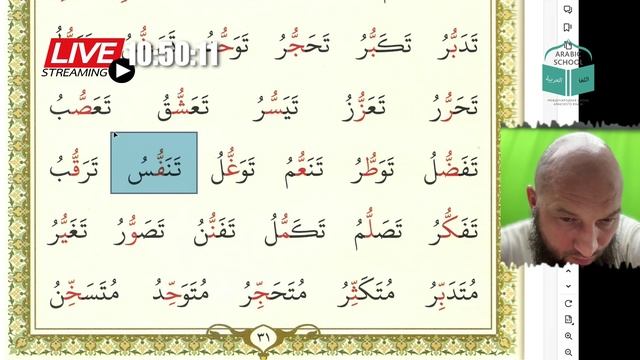 تَدَبُّرُ تَكَبُّرُ تَحَجُّرُ
LIVE 10:50:11
STREAMING
ARABIC
SCHOOL
اللغة العربية
تَحَرُّرُ تَعَزُّزُ تَيَسُّرُ تَعَشُّقُ تَعَصُّبُ
تَفَضُّلُ تَوَطُّرُ تَنَعُّمُ تَوَغُّلُ تَنَفُّسُ تَرَقُّبُ
تَفَكُّرُ تَصَلُّمُ تَكَمُّلُ تَفَنُّنُ تَصَوُّرُ تَغَيُّرُ
مُتَدَبِّرُ مُتَكَثِّرُ مُتَحَجِّرُ مُتَوَحِّدُ مُتَسَخِّنُ
٣١